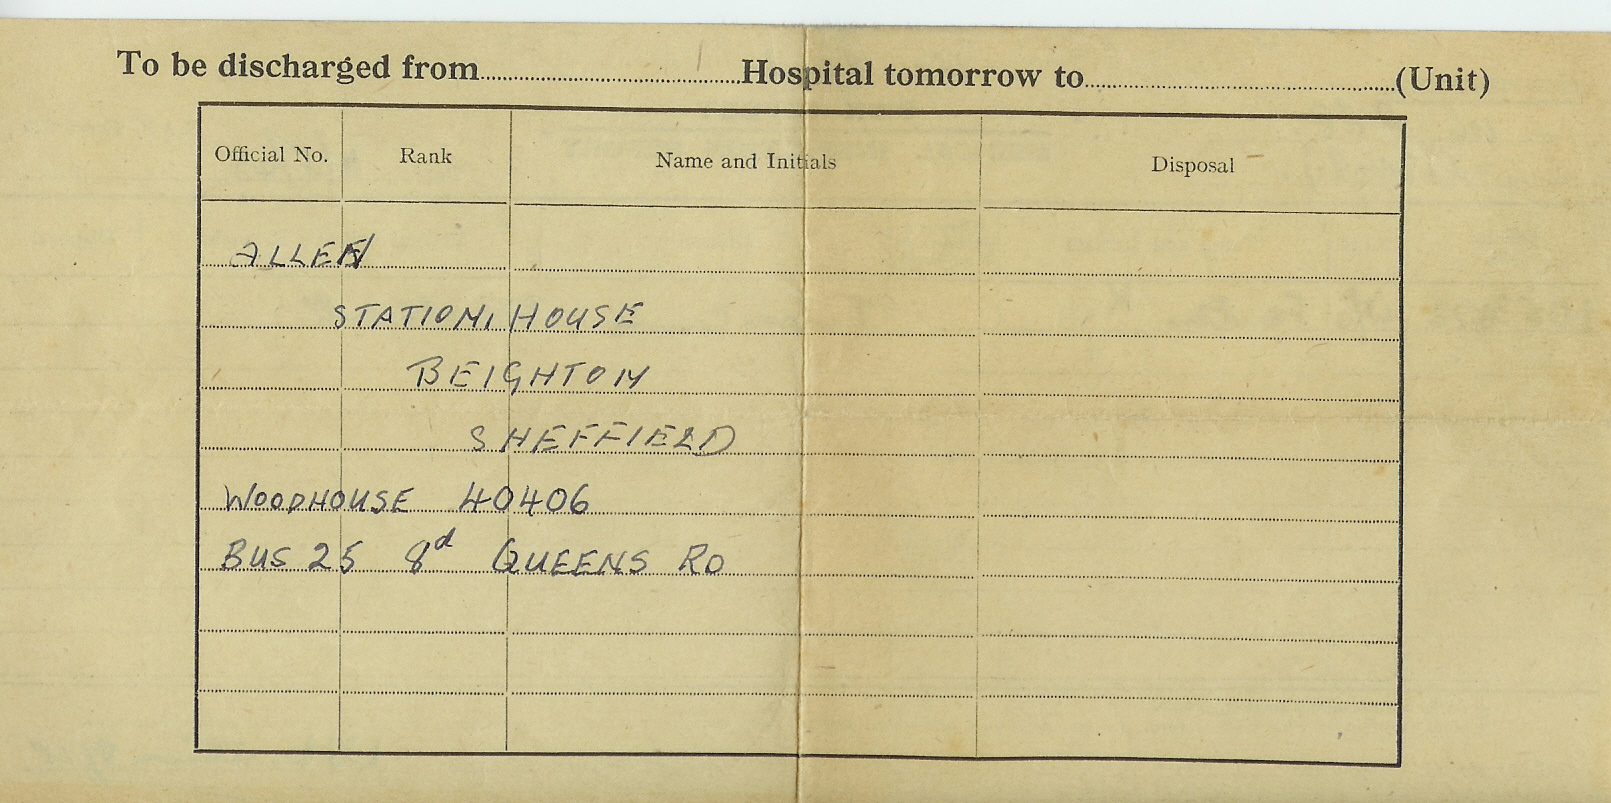 To be discharged from........................Hospital tomorrow to........................(Unit)
Official No. Rank Name and Initials Disposal
ALLEN
STATION HOUSE
BEIGHTON
SHEFFIELD
WOODHOUSE 40406
BUS 25 8d QUEENS RD